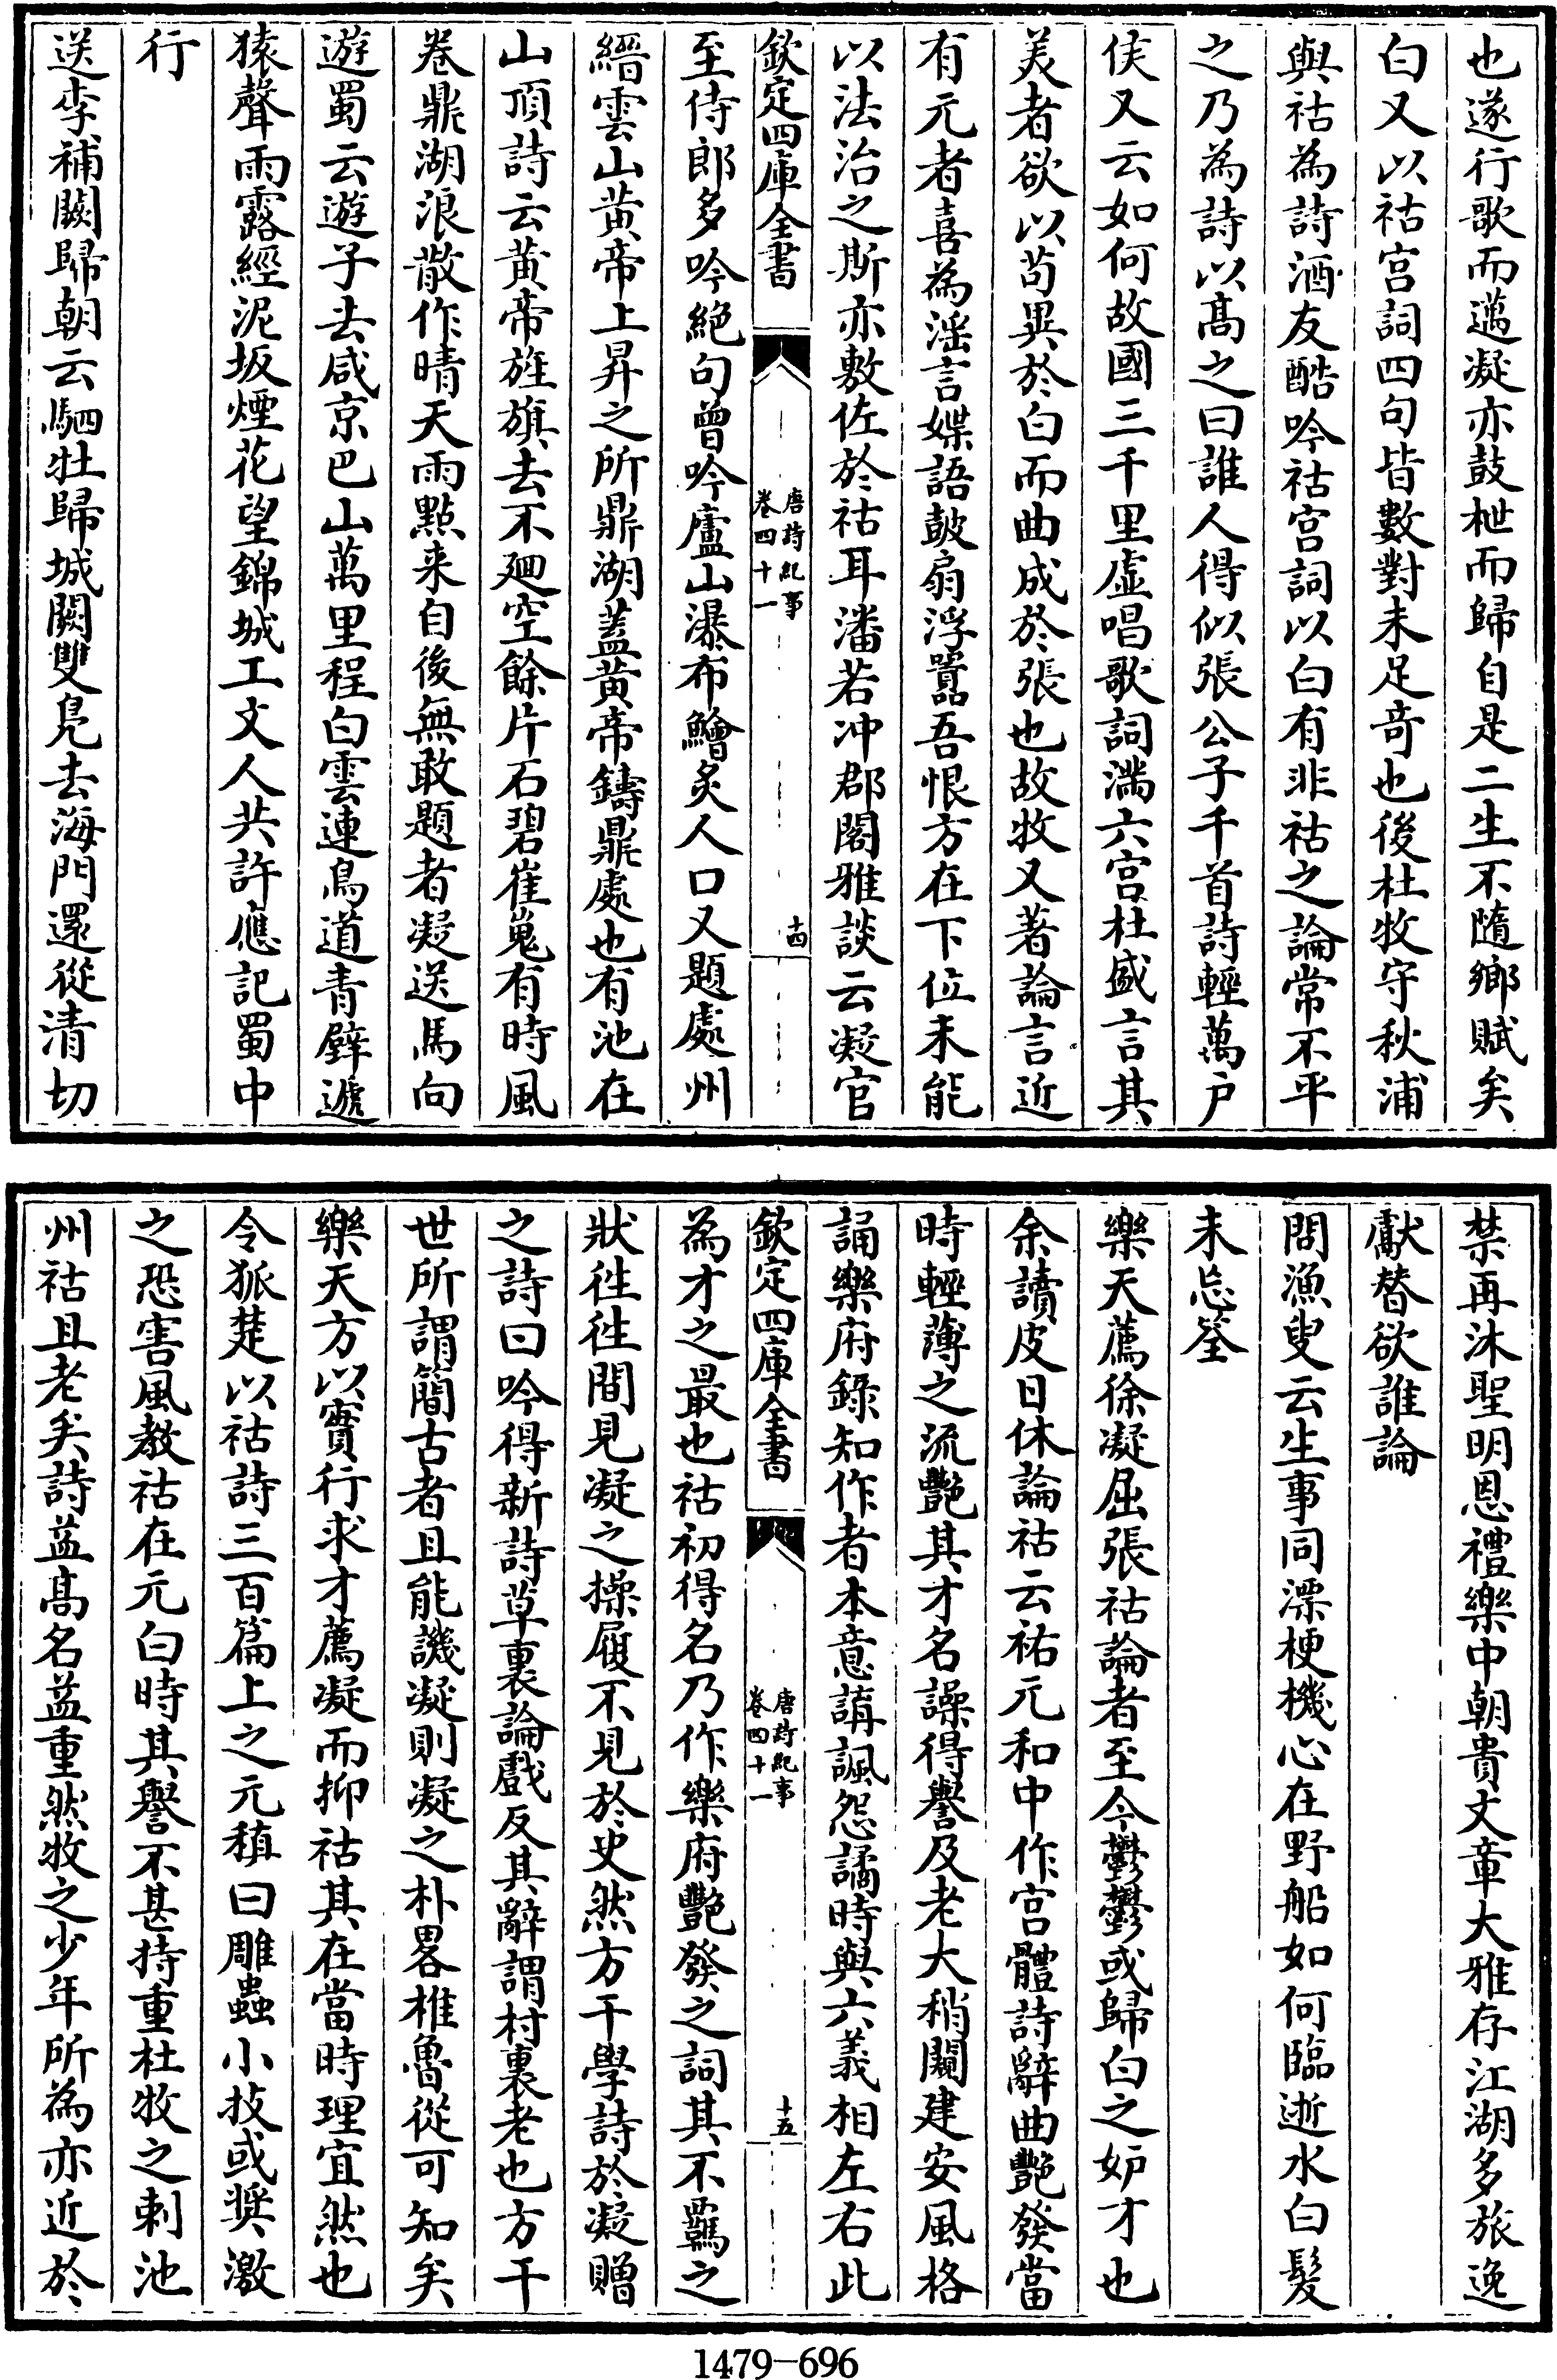 也遂行歌而邁凝亦鼓枻而歸自是二生不隨鄉賦矣
白又以祜宫詞四句皆數對未足竒也後杜牧守秋浦
與祜為詩酒友酷吟祜宫詞以白有非祜之論常不平
之乃為詩以髙之曰誰人得似張公子千首詩輕萬户
侯又云如何故國三千里虚唱歌詞滿六宫杜盛言其
美者欲以茍異於白而曲成於張也故牧又著論言近
有元者喜為淫言媟語鼓扇浮囂吾恨方在下位未能
以法治之斯亦敷佐於祜耳潘若冲郡閣雅談云凝官
欽定四庫全書
唐詩紀事
卷四十一
十四
至侍郎多吟絶句曾吟廬山瀑布鱠炙人口又題處州
縉雲山黄帝上昇之所鼎湖葢黄帝鑄鼎處也有池在
山頂詩云黄帝旌旗去不廻空餘片石碧崔嵬有時風
卷鼎湖浪散作晴天雨點来自後無敢題者凝送馬向
遊蜀云遊子去咸京巴山萬里程白雲連鳥道青壁遞
猿聲雨露經泥坂煙花望錦城工文人共許應記蜀中
行
送李補闕歸朝云駟牡歸城闕雙鳬去海門還從清切
禁再沐聖明恩禮樂中朝貴文章大雅存江湖多旅逸
獻替欲誰論
問漁叟云生事同漂梗機心在野船如何臨逝水白髮
未忘筌
樂天薦徐凝屈張祜論者至今鬱鬱或歸白之妒才也
余讀皮日休論祜云祐元和中作宫體詩辭曲艷發當
時輕薄之流艷其才名譟得譽及老大稍闚建安風格
誦樂府錄知作者本意講諷怨譎時與六義相左右此
欽定四庫全書
唐詩紀事
卷四十一
十五
為才之最也祜初得名乃作樂府艷發之詞其不羈之
狀徃徃間見凝之操履不見於史然方干學詩於凝贈
之詩曰吟得新詩草裏論戲反其辭謂村裏老也方干
世所謂簡古者且能譏凝則凝之朴畧椎魯從可知矣
樂天方以實行求才薦凝而抑祜其在當時理宜然也
令狐楚以祜詩三百篇上之元稹曰雕蟲小技或奬激
之恐害風教祜在元白時其譽不甚持重杜牧之刺池
州祜且老矣詩益髙名益重然牧之少年所為亦近於
1479—696